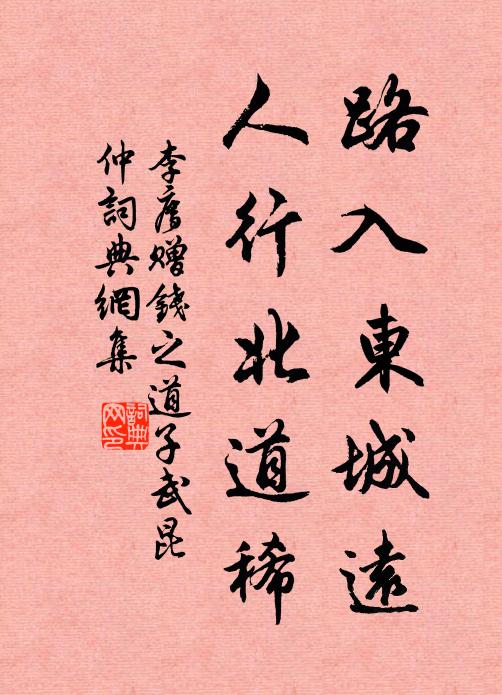 路入東城遠
人行北道稀
李廌贈錢之道子武昆
仲詞典網集
詞典
网印